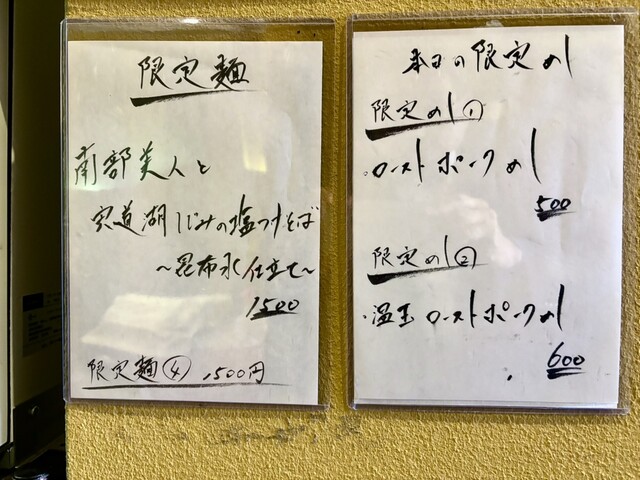 限定麺
南部美人と
宍道湖しじみの塩つけそば
~昆布水仕立て~
1500
限定麺④ 1500円
本日の限定めし
限定めし①
・ローストポークめし
500
限定めし②
・温玉ローストポークめし
600